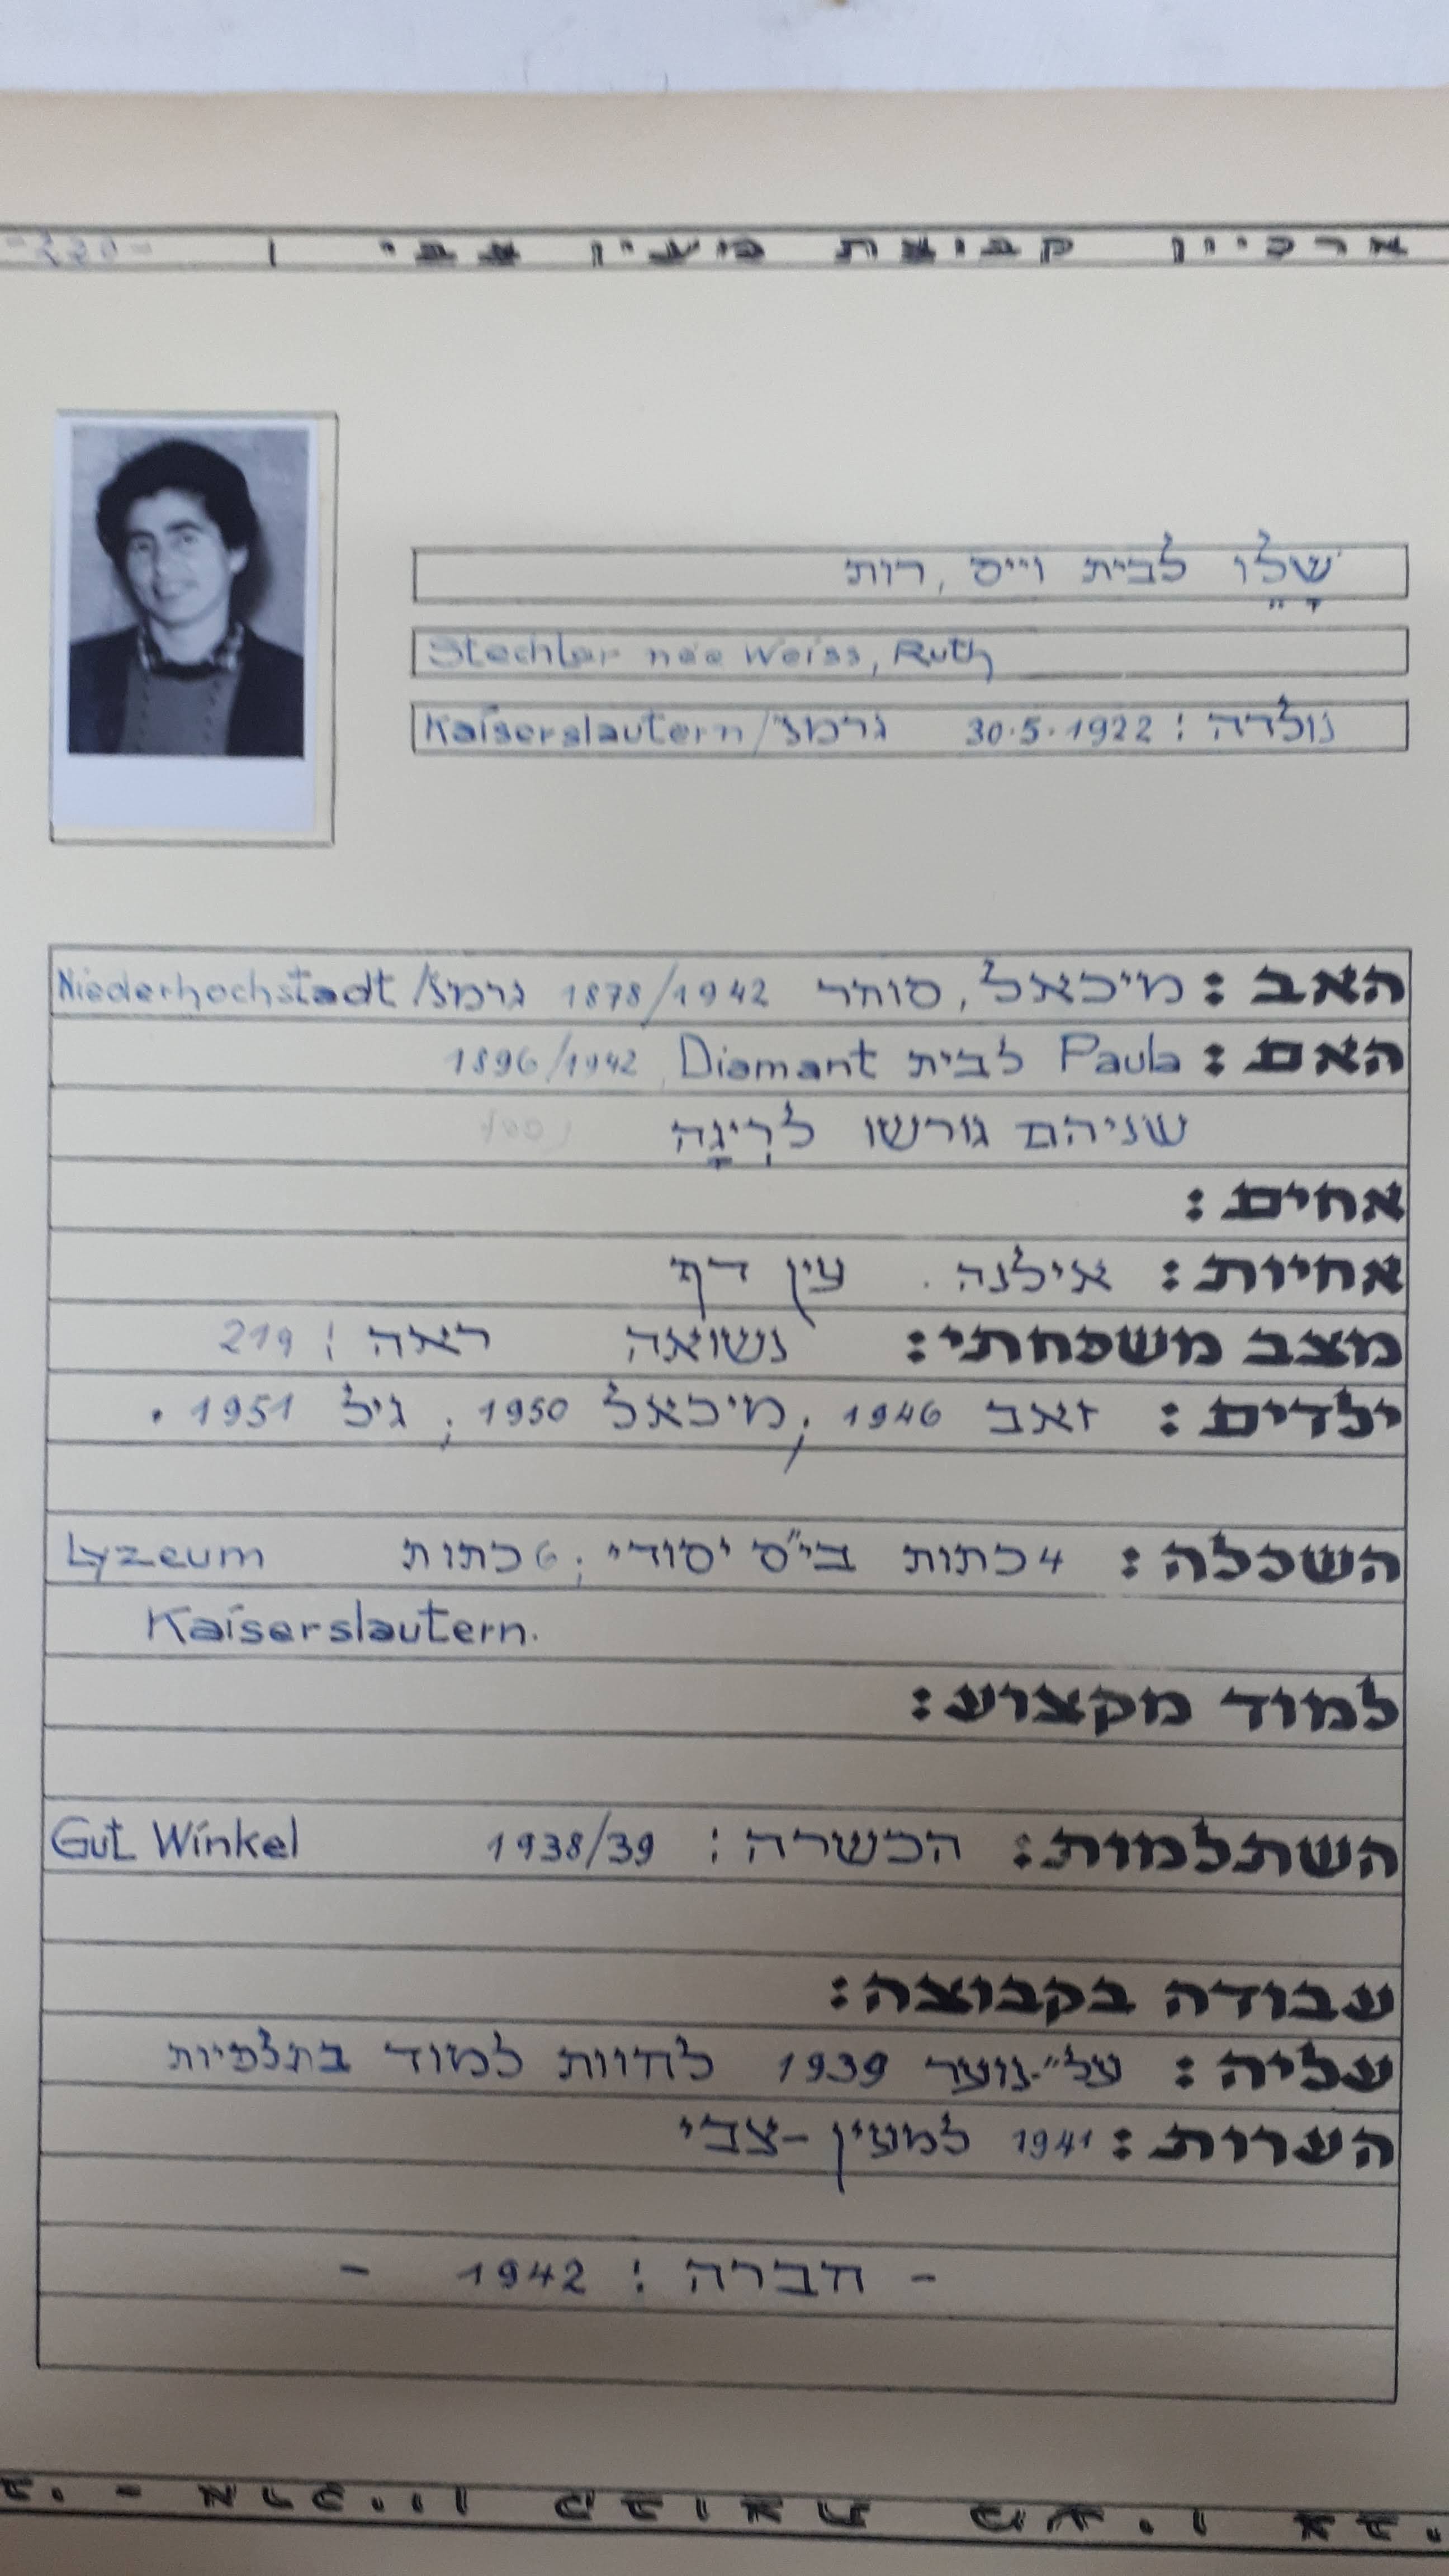 ארכיון קבוצת מעין צבי | -220-
שָׁלֵו לבית וייס, רות
Stechler née Weiss, Ruth
נולדה: 30.5.1922 גרמנ'/Kaiserslautern
האב: מיכאל, סוחר 1878/1942 גרמנ'/Niederhochstadt
האם: Paula לבית Diamant 1896/1942
שניהם גורשו לרִיגָה
אחים:
אחיות: אילנה. עין דף
מצב משפחתי: נשואה ראה: 219
ילדים: זאב 1946, מיכאל 1950; גיל 1951.
השכלה: 4 כתות בי"ס יסודי; 6 כתות Lyzeum
Kaiserslautern.
למוד מקצוע:
השתלמות: הכשרה: 1938/39 Gut Winkel
עבודה בקבוצה:
עליה: על"-נוער 1939 לחוות למוד בתלפיות
הערות: 1941 למעין-צבי
- חברה: 1942 -